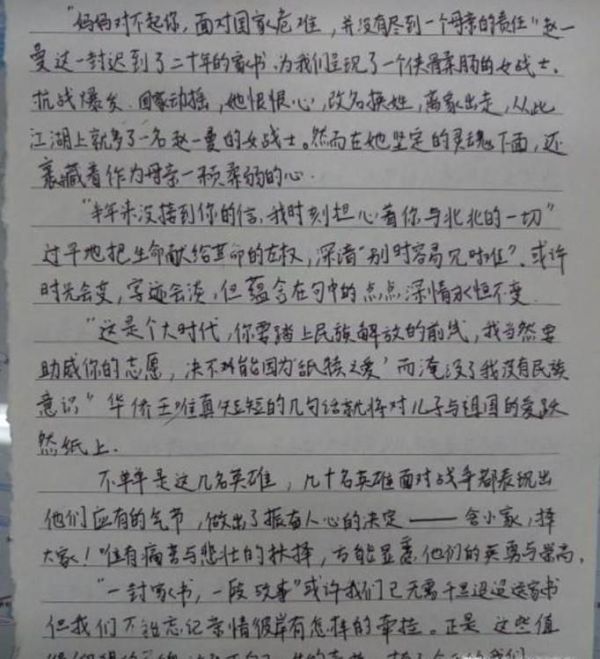 “妈妈对不起你，面对国家危难，并没有尽到一个母亲的责任”赵一
曼这一封迟到了二十年的家书，为我们呈现了一个侠骨柔肠的女战士。
抗战爆发，国家动摇，她恨恨心，改名换姓，离家出走，从此
江湖上就多了一名赵一曼的女战士。然而在她坚定的灵魂下面，还
裹藏着作为母亲一颗柔弱的心.
“半年来没接到你的信，我时刻担心着你与北北的一切”
过早地把生命献给革命的左权，深谙“别时容易见时难”，或许
时光会变，字迹会淡，但蕴含在句中的点点深情永恒不变.
“这是个大时代，你要踏上民族解放的前线，我当然要
助威你的志愿，决不能因为‘舐犊之爱’而淹没了我没有民族
意识”华侨王唯真短短的几句话就将对儿子与祖国的爱跃
然纸上.
不单单是这几名英雄，几十名英雄面对战争都表现出
他们应有的气节，做出了振奋人心的决定——舍小家，择
大家！唯有痛苦与悲壮的抉择，方能显悉他们的英勇与崇高.
“一封家书，一段故事”或许我们已无需千里迢迢送家书
但我们不能忘记亲情彼岸有怎样的牵挂。正是这些值